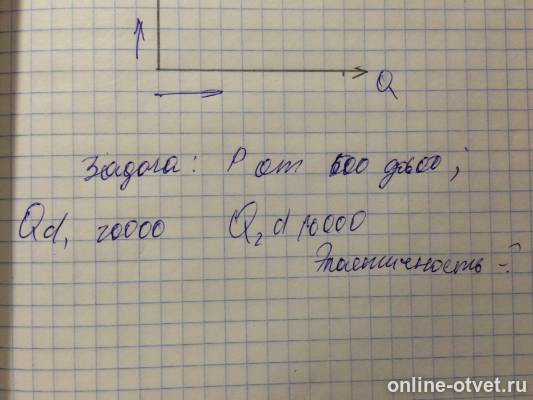 Q
Задача: P от 500 до 600;
Qd₁ 20000 Q₂d 10000
Эластичность - ?
online-otvet.ru